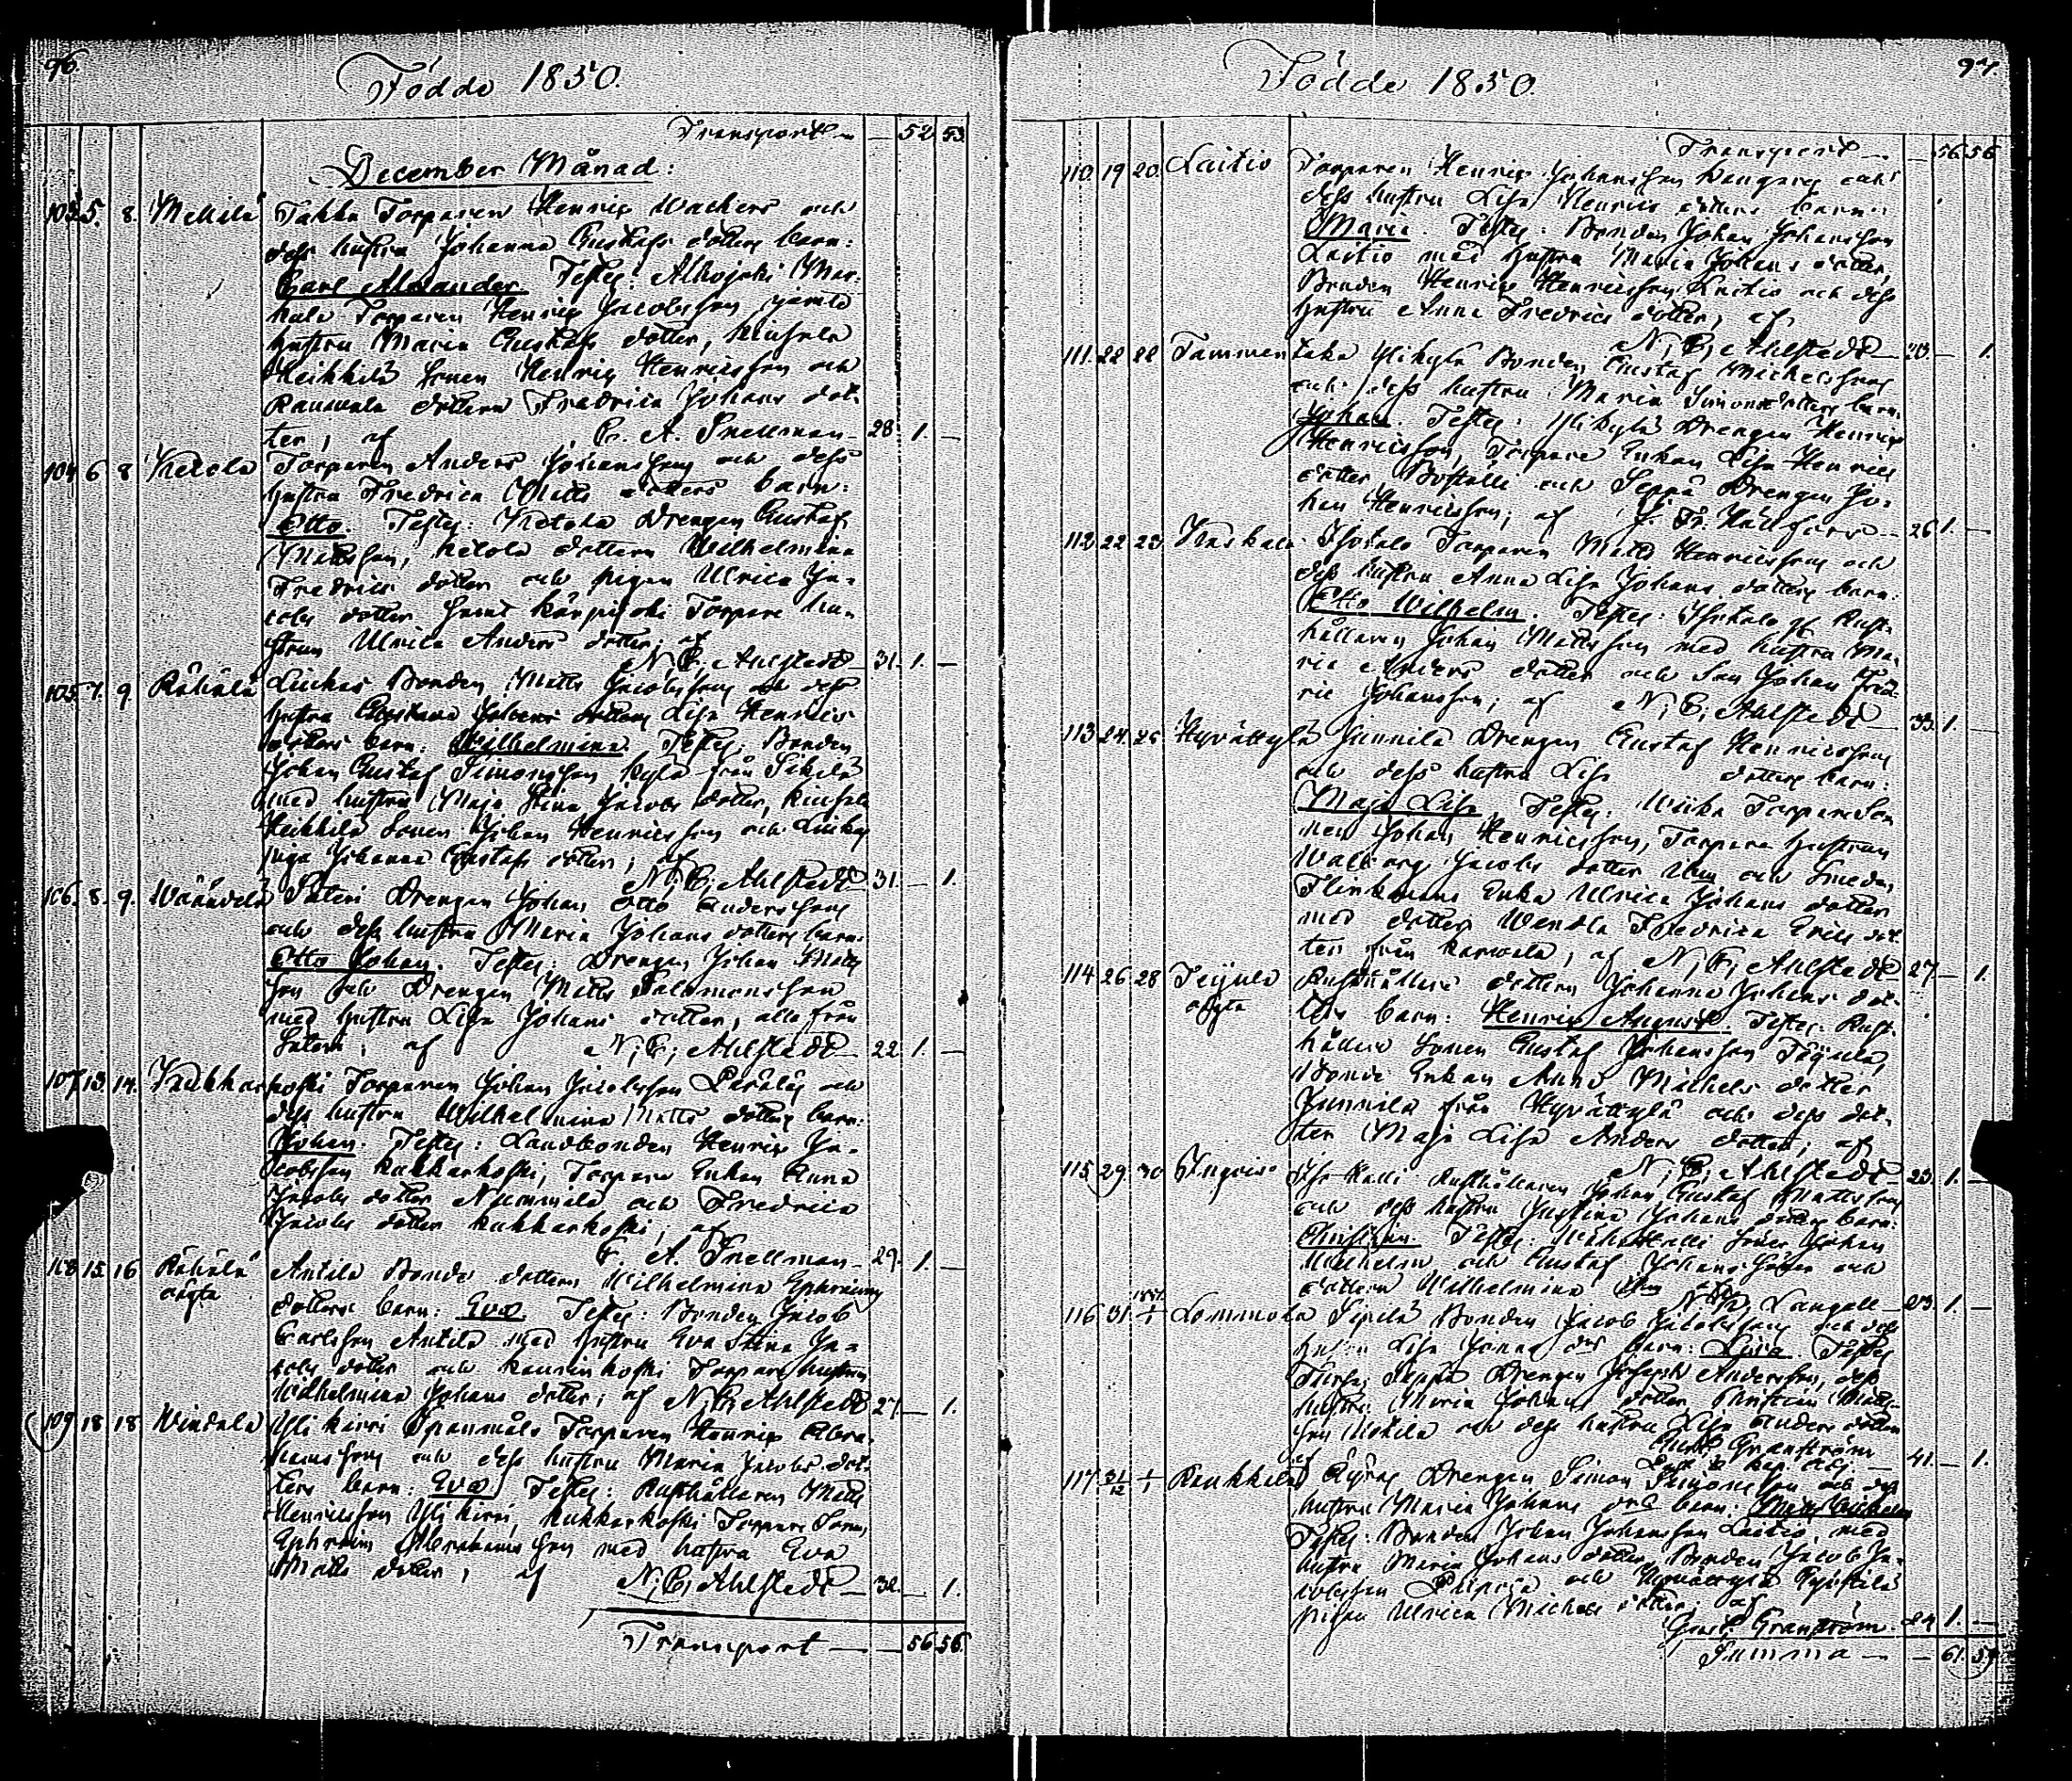 96.
Födde 1850.
Transport — — 52. 53.
December Månad:
103. 5. 8. Mellilä Takka Torparen Henrik Wackers och
dess hustru Johanna Gustafs dotters barn:
Carl Alexander. Testes: Alhojoki
Torparen Henrik Jacobsson jämte
hustru Maria Gustafs dotter,
Heikkilä Sonen Henrik Henricsson och
dottern Fredrica Johans dot-
ter, af A. Snellman — 28. 1. —
104 6 8 Ketola Torparen Anders Johansson och dess
hustru Fredrica Matts dotters barn:
Otto. Testes: Ketola Drengen Gustaf
Mattsson, Ketola dottern Wilhelmina
Fredrics dotter och pigan Ulrica Ja-
cobs dotter samt Torpare hu-
strun Ulrica Anders dotter; af
N. C. Ahlstedt — 31. 1. —
105 7. 9. Rähälä Bonden Matts Jacobsson och dess
hustru Lisa Henrics
dotters barn: Wilhelmina. Testes: Bonden
Johan Gustaf Simonsson Kylä från Sikilä
med hustru Maja Stina Jacobs dotter,
Heikkilä Sonen Johan Henricsson och
piga Johanna Gustafs dotter; af
N. C. Ahlstedt — 31. — 1.
106. 8. 9. Wäändelä Säteri Drengen Johan Otto Andersson
och dess hustru Maria Johans dotters barn:
Otto Johan. Testes: Drengen Johan Matts
son och Drengen Matts Salomonsson
med hustru Lisa Johans dotter, alla från
Säteri; af N. C. Ahlstedt — 22 1. —
107. 13. 14. Kukkarkoski Torparen Johan Jacobsson och
dess hustru Wilhelmina Matts dotters barn:
Johan. Testes: Landbonden Henrik Ja-
cobsson Kukkarkoski, Torpare Enkan Anna
Jacobs dotter Nummela och Fredrica
Jacobs dotter Kukkarkoski; af
A. Snellman — 29. 1. —
108 15 16 Rähälä Antila Bonde dottern Wilhelmina Ephraims
oägta dotters barn: Eva. Testes: Bonden Jacob
Carlsson Antila med hustru Eva Stina Ja-
cobs dotter och Torpare hustrun
Wilhelmina Johans dotter; af N. C. Ahlstedt 27. — 1.
109 18 18. Windala Yli Kirri Torparen Henrik Abra-
hamsson och dess hustru Maria Jacobs dot-
ters barn: Eva. Testes: Rusthållaren Matts
Henricsson Yli Kirri, Kukkarkoski Torpare Sonen
Ephraim Abrahamsson med hustru Eva
Matts dotter; af N. C. Ahlstedt — 32. — 1.
Transport — — 56. 56.
97.
Födde 1850.
Transport — — 56 56
110. 19 20. Laitio Torparen Henrik Johansson och
dess hustru Lisa Henrics dotters barn:
Maria. Testes: Bonden Johan Johansson
Laitio med hustru Maria Johans dotter,
Bonden Henrik Henricsson Laitio och dess
hustru Anna Fredrics dotter; af
N. C. Ahlstedt — — 1.
111. 22 22 Tammentaka Ylikylä Bonden Gustaf Michelsson
och dess hustru Maria Simons dotters barn:
Johan. Testes: Ylikylä Drengen Henrik
Henricsson, Torpare Enkan Lisa Henrics
dotter Boställe och Seppä Drengen Jo-
han Henricsson; af J. Fr. Hällfors — 26 1. —
112. 22 23 Torparen Matts Henricsson och
dess hustru Anna Lisa Johans dotters barn:
Otto Wilhelm. Testes: Rust-
hållaren Johan Mattsson med hustru Ma-
ria Anders dotter och Son Johan Fred-
ric Johansson; af N. C. Ahlstedt — 33. 1. —
113. 24. 25 Hyvättylä Junnila Drengen Gustaf Henricsson
och dess hustru Lisa dotters barn:
Maja Lisa. Testes: Torpare So-
nen Johan Henricsson, Torpare hustrun
Walborg Jacobs dotter och Smeden
Flinkmans Enka Ulrica Johans dotter
med dotter Wendla Fredrica Erics dot-
ter från Karwala; af N. C. Ahlstedt 27. — 1.
114 26 28 Teijula Rusthållare dottern Johanna Johans dot-
oägta ters barn: Henrik August. Testes: Rust-
hållare Sonen Gustaf Johansson Teijula,
Bonde Enkan Anna Michels dotter
Junnila från Hyvättylä och dess dot-
ter Maja Lisa Anders dotter; af
N. C. Ahlstedt — 23. 1. —
115 29. 30 Rusthållaren Johan Gustaf Mattsson
och dess hustru Justina Johans dotters barn:
Christian. Testes: Söner Johan
Wilhelm och Gustaf Johans Söner och
dottern Wilhelmina
Langell — 23. 1. —
116 31. 1/1 Lommola Sipilä Bonden Jacob Jacobsson och dess
hustru Lisa Johans dot barn: Lovisa. Testes
Seppä Drengen Joseph Andersson, dess
hustru Maria Johans dotter, Christian Matts-
son och dess hustru Lisa Anders dotter
Gust. Granström — 41. — 1.
117. 31/12 1/1 Raukkila Drengen Simon Simonsson och dess
hustru Maria Johans dots barn: Matts Wilhelm
Testes: Bonden Johan Johansson Laitio, med
hustru Maria Johans dotter, Bonden Jacob Ja-
cobsson och Hyvättylä
pigan Ulrica Michels dotter; af
Gust. Granström. 24 1. —
Summa — — 61. 59